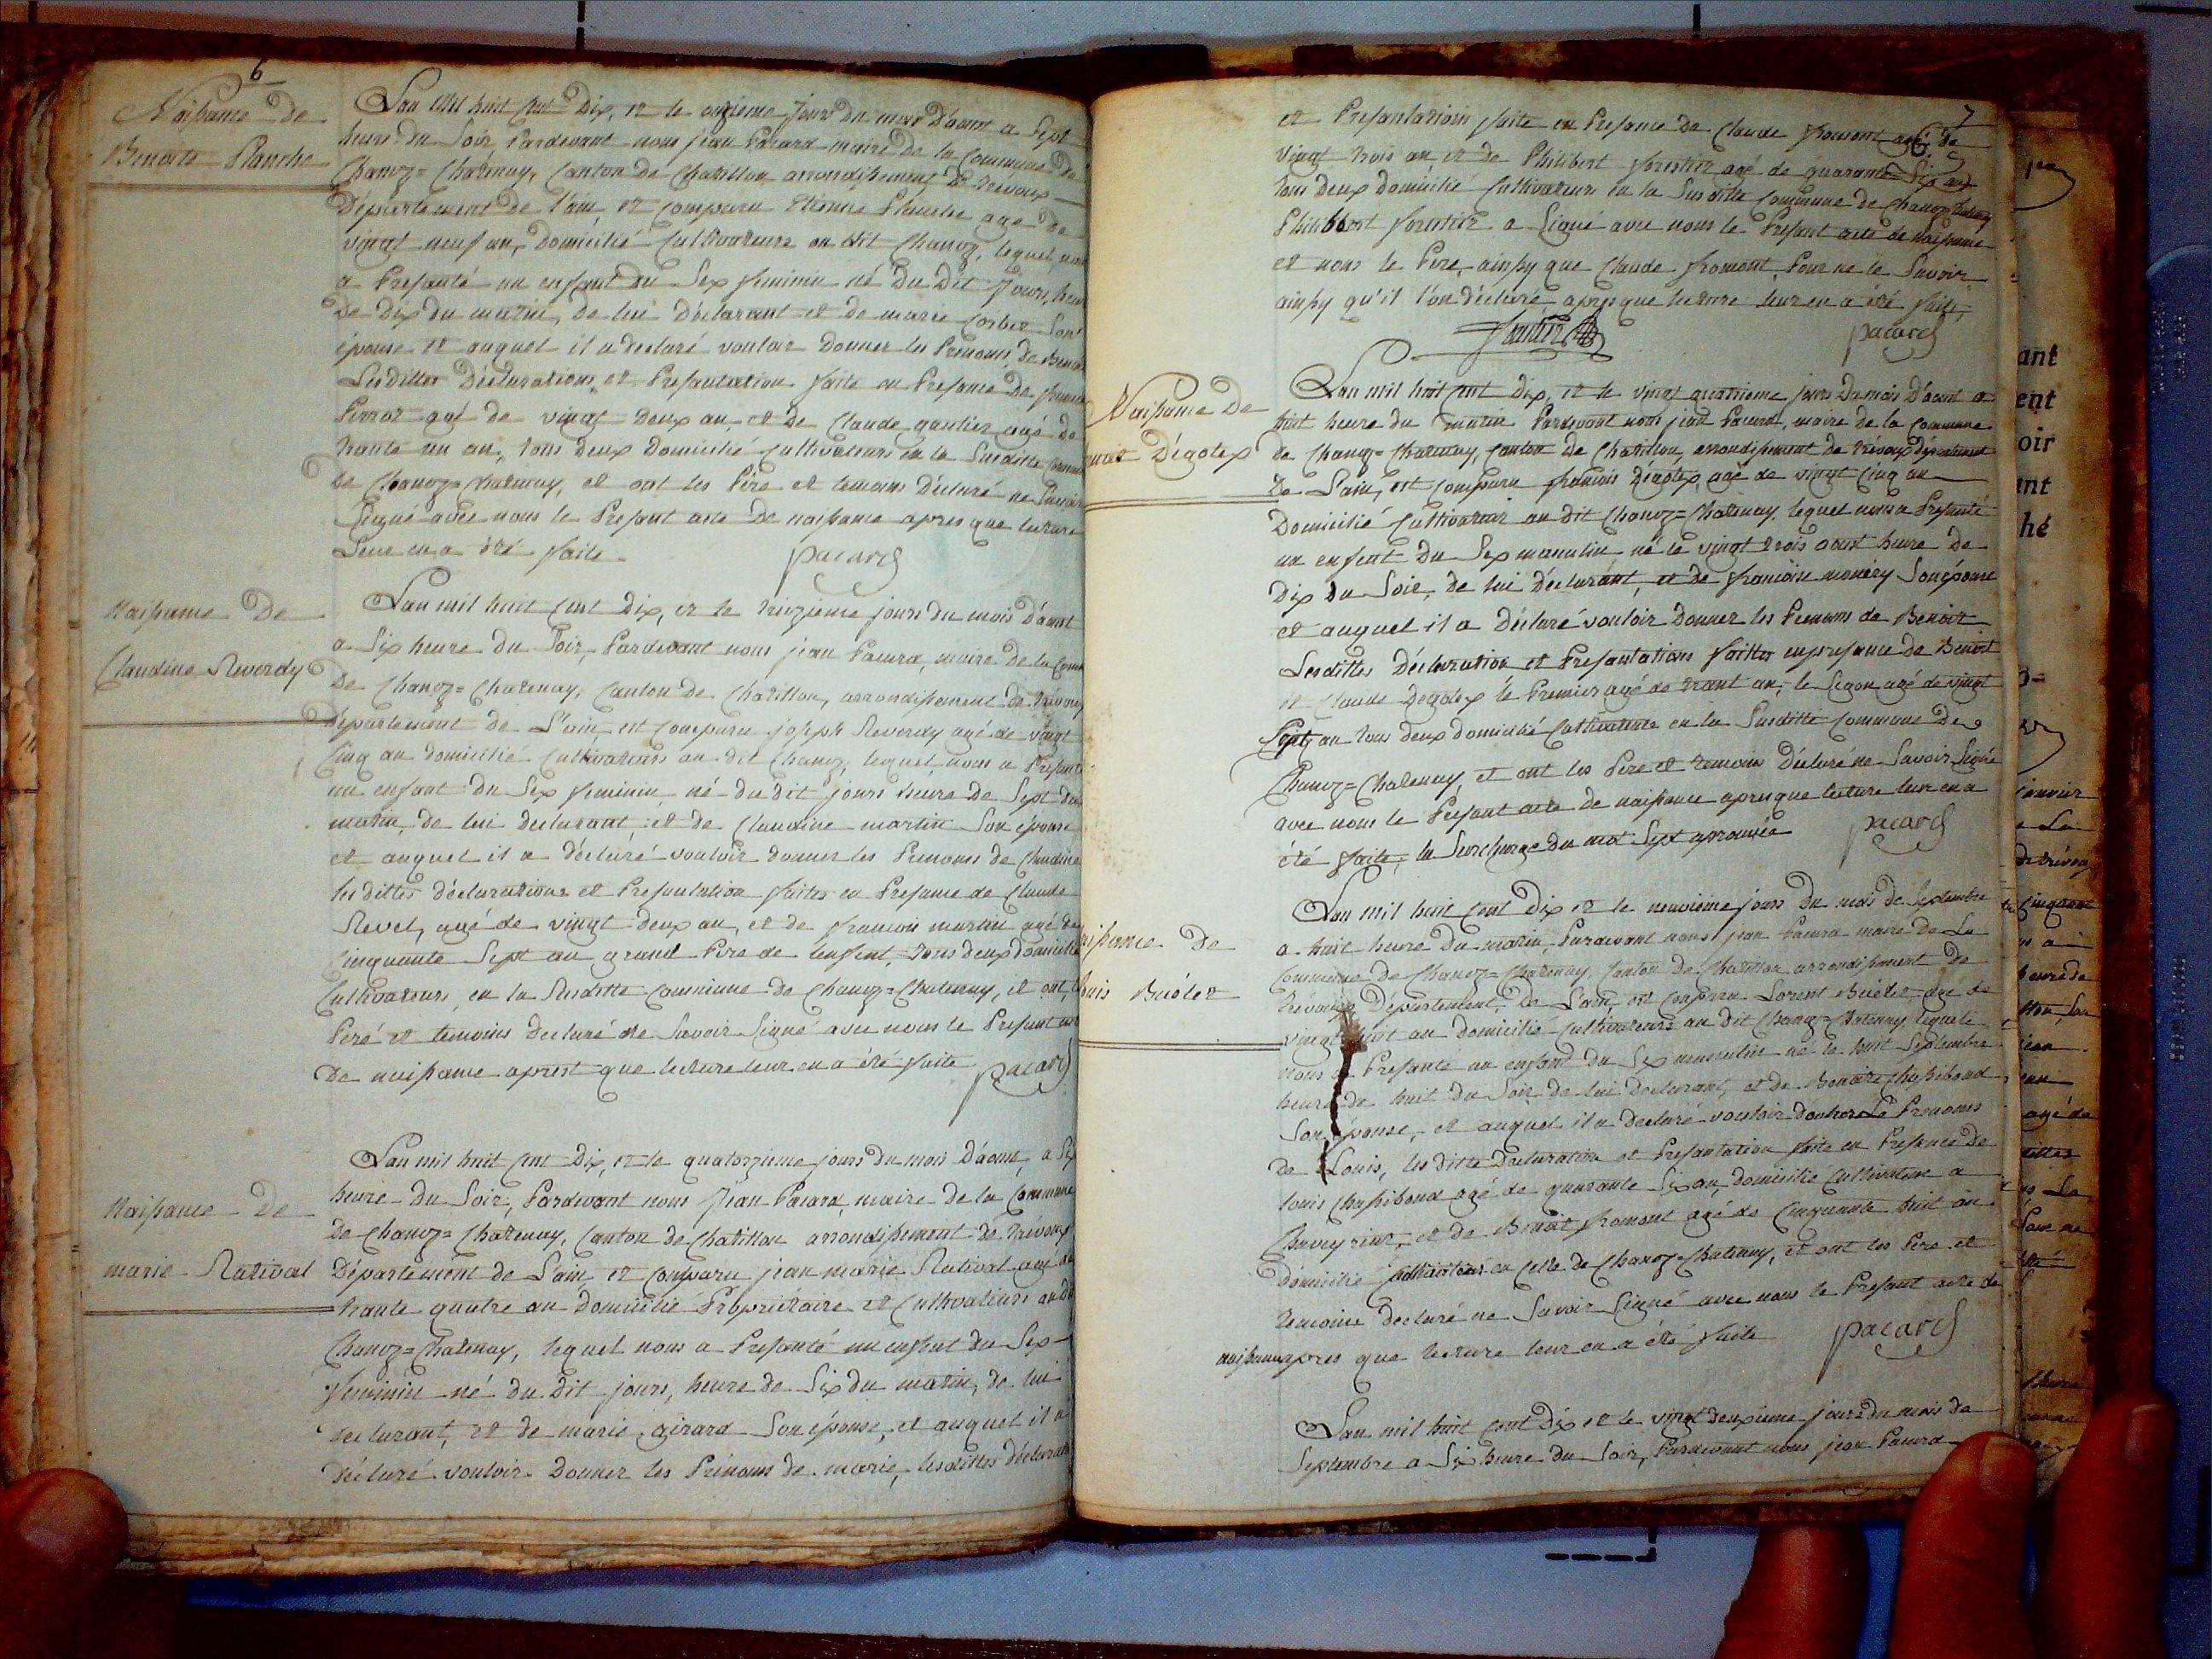 6
Naissance de
Benoite Planche
Lan mil huit cent Dix, et le onzieme jours du mois Daoust a Sept
heure du Soir Pardevant nous jean Pacard maire de la Commune de
Chanoz=Chatenay, Canton de Chatillon arrondissement de Trevoux
Département de l'ain, est comparu Etienne Planche age de
vingt neuf an, Domicilié Cultivateurs au dit Chanoz, lequel nous
a Presanté un enfant du Sex feminin né Du Dit Jours, heure
De Dix du matin, de lui Déclarant et de marie Corbet Son
épouse et auquel il a declaré vouloir Donner les Prenoms de Benoite
Lesdittes Déclarations et Presantation faite en Presance de
Perrot agé de vingt Deux an et De Claude gautier agé de
trante un an, tous deux Domicilié Cultivateurs en la Susditte Commune
de Chanoz=Chatenay, et ont les Pére et temoins Déclaré ne Savoir
Signé avec nous le Presant acte De naissance apres que lecture
Leur en a été faite
Pacard
Naissance De
Claudine Reverdy
Lan mil huit Cent Dix, et le treizieme jours du mois D'aoust
a Six heure du Soir, Pardevant nous jean Pacard, maire de la Commune
De Chanoz=Chatenay, Canton de Chatillon, arrondissement de Trevoux
Département de L'ain, est comparu joseph Reverdy agé de vingt
Cinq an domicilié Cultivateurs au dit Chanoz, lequel nous a Presanté
un enfant du Sex feminin né du dit jours heure de Sept du
matin, de lui declarant, et de Claudine martin Son épouse
et auquel il a déclaré vouloir donner les Prenoms de Claudine
les dittes déclarations et Presantation faites en Presance de Claude
Revel, agé de vingt deux an, et de francois martin agé de
Cinquante Sept an grand Pere de lenfant, tous deux domicilié
Cultivateurs, en la Susditte Commune de Chanoz=Chatenay, et ont, le
Peré et temoins declaré ne Savoir Signé avec nous le Presant acte
De naissance aprest que lecture leur en a été faite
Pacard
Naissance De
marie Rativat
Lan mil huit Cent Dix, et le quatorzieme jours du mois D'aoust, a Six
heure du Soir, Pardevant nous Jean Pacard, maire de la Commune
De Chanoz=Chatenay, Canton de Chatillon arrondissement de trévoux
Département de L'ain est comparu jean marie Rativat agé de
trante quatre an Domicilié Propriétaire et Cultivateurs au dit
Chanoz=Chatenay, lequel nous a Presanté un enfant du Sex
feminin né du Dit jours, heure de Six du matin, de lui
declarant, et de marie girard Son épouse, et auquel il a
déclaré vouloir Donner les Prénoms de marie, lesdittes déclarations
7
et Presantatioin faite en Presance de Claude fromont agé de
vingt trois an, et de Philibert forestier agé de quarante Six an
tous deux domicilié Cultivateurs en la Susditte Commune de Chanoz Chatenay
Philibbert forestier a Signé avec nous le Presant acte de naissance
et nous le Pere, ainsy que Claude fromont, Pour ne le Savoir
ainsy qu'il l'on déclaré apres que lecture leur en a été faite,
Pacard
Naissance De
Dégotex
Lan mil huit Cent Dix, et le vingt quatrieme jours Du mois D'aoust a
huit heure du matin Pardevant nous jean Pacard, maire de la Commune
de Chanoz=Chatenay, Canton de Chatillon, arrondissement de trévoux département
De L'ain, est comparu francois Dégotex, agé de vingt Cinq an
Domicilié Cultivateur au dit Chanoz=Chatenay, lequel nous a Presanté
un enfent du Sex masculin né le vingt trois aoust heure de
Dix Du Soir, de lui Déclarant, et de francoise monéry Son épouse
et auquel il a Déclaré vouloir Donner les Prenoms de Benoit
Lesdittes Déclaration et Presantations faittes enpresance de Benoit
et Claude Degotex le Premier agé de trant an, le Segon agé de vingt
Sept an tous deux domicilié Cultivateurs en la Susditte Commune De
Chanoz=Chatenay, et ont les Pere et temoins Déclaré ne Savoir Signé
avec nous le Presant acte de naissance apres que lecture leur en a
été faite, la Surcharge du mot Sept aprouvée
Pacard
De
Louis Buiolet
Lan mil huit Cent Dix et le neuvième jours Du mois de Septembre
a huit heure du matin, Pardevant nous jean Pacard maire de La
Commune de Chanoz=Chatenay, Canton de Chatillon arrondissement de
Trévoux Département, de L'ain, est Comparu Lorent Buiolet agé de
vingt huit an domicilié Cultivateurs au dit Chanoz=Chatenay lequel
nous a Presanté un enfant du Sex masculin né le huit Septembre
heure de huit du Soir de lui declarant, et de Benoite Chassiboud
Son épouse, et auquel il a declaré vouloir donner Le Prenoms
de Louis, les ditte Declaration et Presantation faite en Presance de
louis Chassiboud agé de quarante Six an, domicilié Cultivateur a
Chaveyriat, et de Benoit fromont agé de Cinquante huit an
domicilié Cultivateur en Celle de Chanoz=Chatenay, et ont les Pere et
temoins declaré ne Savoir Signé avec nous le Presant acte de
naissance apres que lecture leur en a été faite
Pacard
Lan mil huit Cent Dix et le vingt deuxieme jours du mois de
Septembre a Six heure du Soir, Pardevant nous jean Pacard